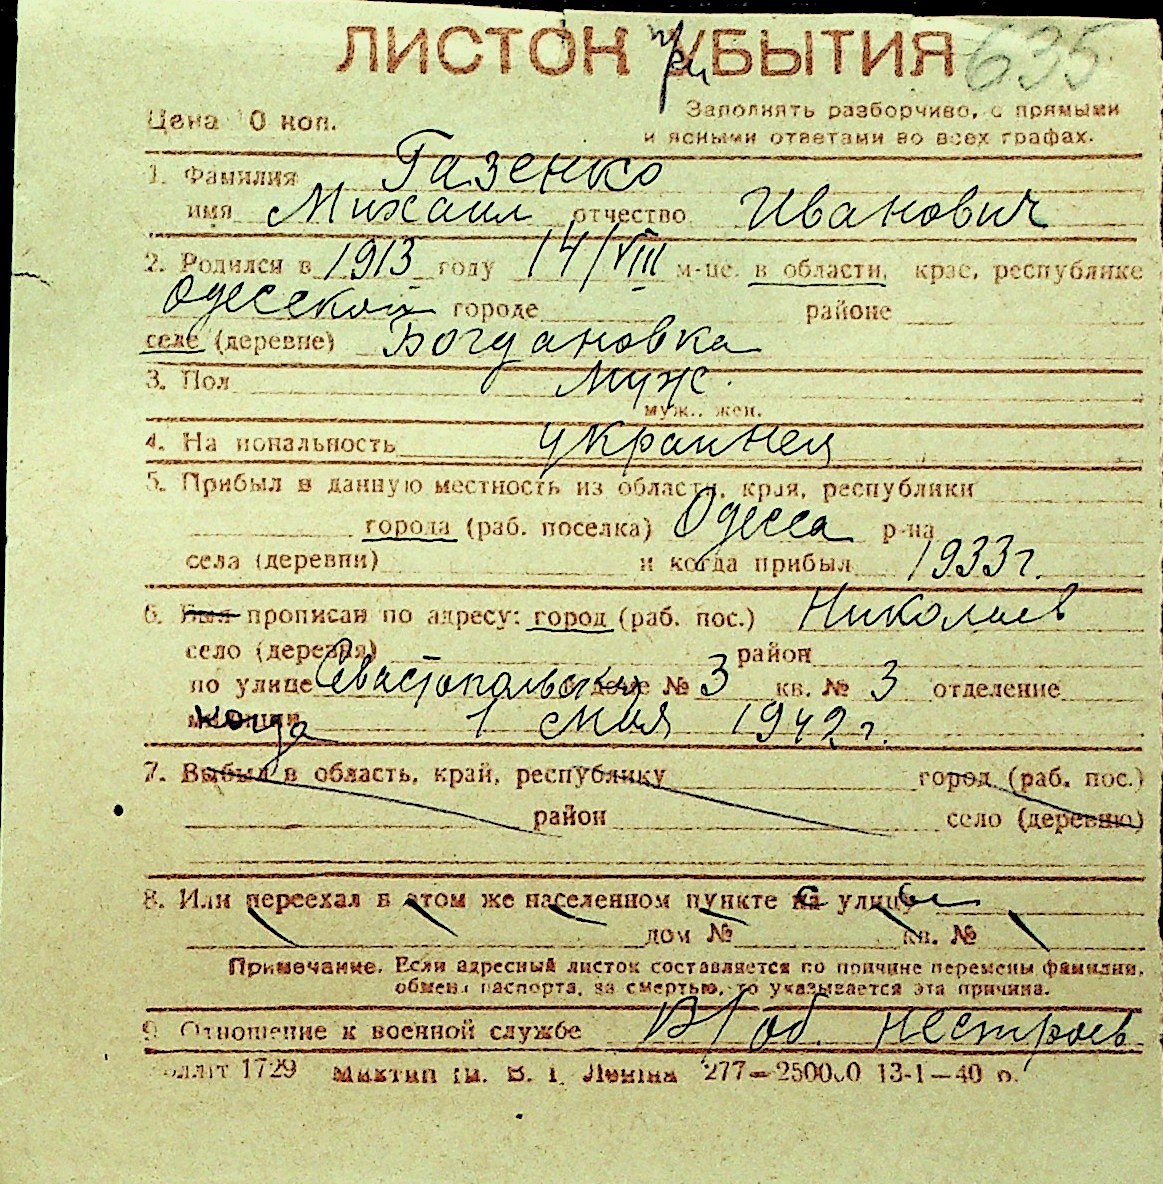 ЛИСТОК УБЫТИЯ 635
при
Цена 10 коп. Заполнять разборчиво, с прямыми
и ясными ответами во всех графах.
1. Фамилия Газенко
имя Михаил отчество Иванович
2. Родился в 1913 году 14/VIII м-це. в области, крае, республике
Одесской городе районе
селе (деревне) Богдановка
3. Пол муж.
муж., жен.
4. На иональность украинец
5. Прибыл в данную местность из области, края, республики
города (раб. поселка) Одесса р-на
села (деревни) и когда прибыл 1933 г.
6. Был прописан по адресу: город (раб. пос.) Николаев
село (деревня) район
по улице Севастопольску доме № 3 кв. № 3 отделение
милиции когда 1 мая 1942 г.
7. Выбыл в область, край, республику город (раб. пос.)
район село (деревню)
8. Или переехал в этом же населенном пункте на улицу
дом № кв. №
Примечание. Если адресный листок составляется по причине перемены фамилии,
обмена паспорта, за смертью, то указывается эта причина.
9. Отношение к военной службе В/об. нестроев.
1729 им. В. І. Леніна 277—250000 13-1—40 р.